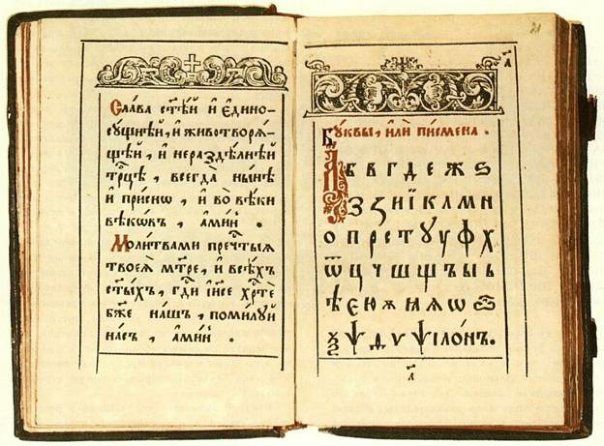 Сла́ва ст҃ѣ́й и҆ є҆ди́но-
сꙋ́щнѣй, и҆ животворѧ́-
щѣй, и҆ нераздѣ́лнѣй
трⷪ҇цѣ, всегда̀ ны́нѣ
и҆ при́снѡ, и҆ во вѣ́ки
вѣкѡ́въ, а҆ми́нь.
Моли́твами пречⷭ҇тыѧ
твоеѧ̀ мт҃ре, и҆ всѣ́хъ
ст҃ы́хъ, гдⷭ҇и і҆и҃се хрⷭ҇тѐ
бж҃е на́шъ, поми́лꙋй
на́съ, а҆ми́нь.
21
а҃
Бꙋ́квы, и҆лѝ писмена̀.
А Б В Г Д Е Ж Ѕ
З Ꙁ И Ї К Л М Н
О П Р С Т Ꙋ У Ф Х
Ѿ Ц Ч Ш Щ Ъ Ы Ь
Ѣ Є Ю Ѫ Ꙗ Ѧ Ѡ
Ѯ Ѱ Ѵ ѱїло́нъ.
а҃